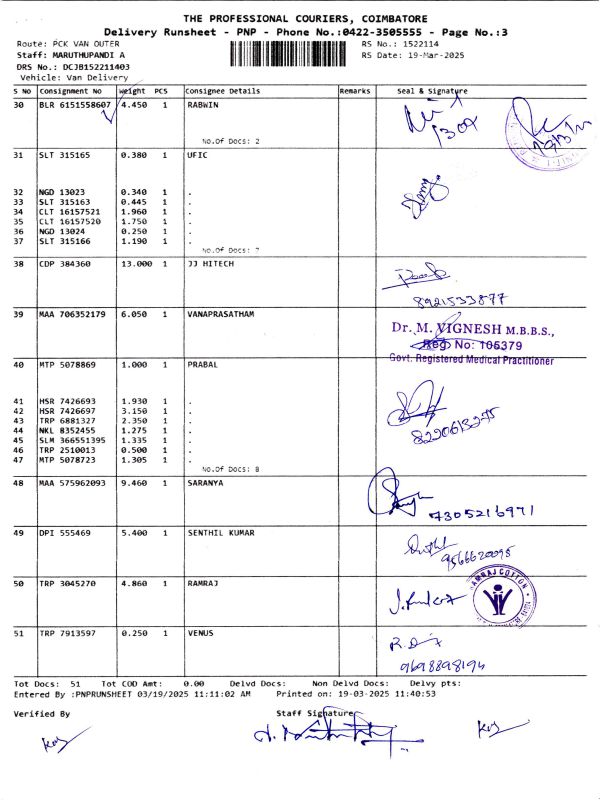 THE PROFESSIONAL COURIERS, COIMBATORE
Delivery Runsheet - PNP - Phone No.:0422-3505555 - Page No.:3
Route: PCK VAN OUTER RS No.: 1522114
Staff: MARUTHUPANDI A RS Date: 19-Mar-2025
DRS No.: DCJB152211403
Vehicle: Van Delivery
S No Consignment No Weight PCS Consignee Details Remarks Seal & Signature
30 BLR 6151558607 4.450 1 RABWIN
No.Of Docs: 2
31 SLT 315165 0.380 1 UFIC
32 NGD 13023 0.340 1 .
33 SLT 315163 0.445 1 .
34 CLT 16157521 1.960 1 .
35 CLT 16157520 1.750 1 .
36 NGD 13024 0.250 1 .
37 SLT 315166 1.190 1 .
No.Of Docs: 7
38 CDP 384360 13.000 1 JJ HITECH
8921533877
39 MAA 706352179 6.050 1 VANAPRASATHAM
Dr. M. VIGNESH M.B.B.S.,
Reg No: 105379
Govt. Registered Medical Practitioner
40 MTP 5078869 1.000 1 PRABAL
41 HSR 7426693 1.930 1 .
42 HSR 7426697 3.150 1 .
43 TRP 6881327 2.350 1 .
44 NKL 8352455 1.275 1 .
45 SLM 366551395 1.335 1 .
46 TRP 2510013 0.500 1 .
47 MTP 5078723 1.305 1 .
No.Of Docs: 8
48 MAA 575962093 9.460 1 SARANYA
7305216971
49 DPI 555469 5.400 1 SENTHIL KUMAR
9566620095
50 TRP 3045270 4.860 1 RAMRAJ
RAMRAJ COTTON
51 TRP 7913597 0.250 1 VENUS
9698898194
Tot Docs: 51 Tot COD Amt: 0.00 Delvd Docs: Non Delvd Docs: Delvy pts:
Entered By :PNPRUNSHEET 03/19/2025 11:11:02 AM Printed on: 19-03-2025 11:40:53
Verified By Staff Signature